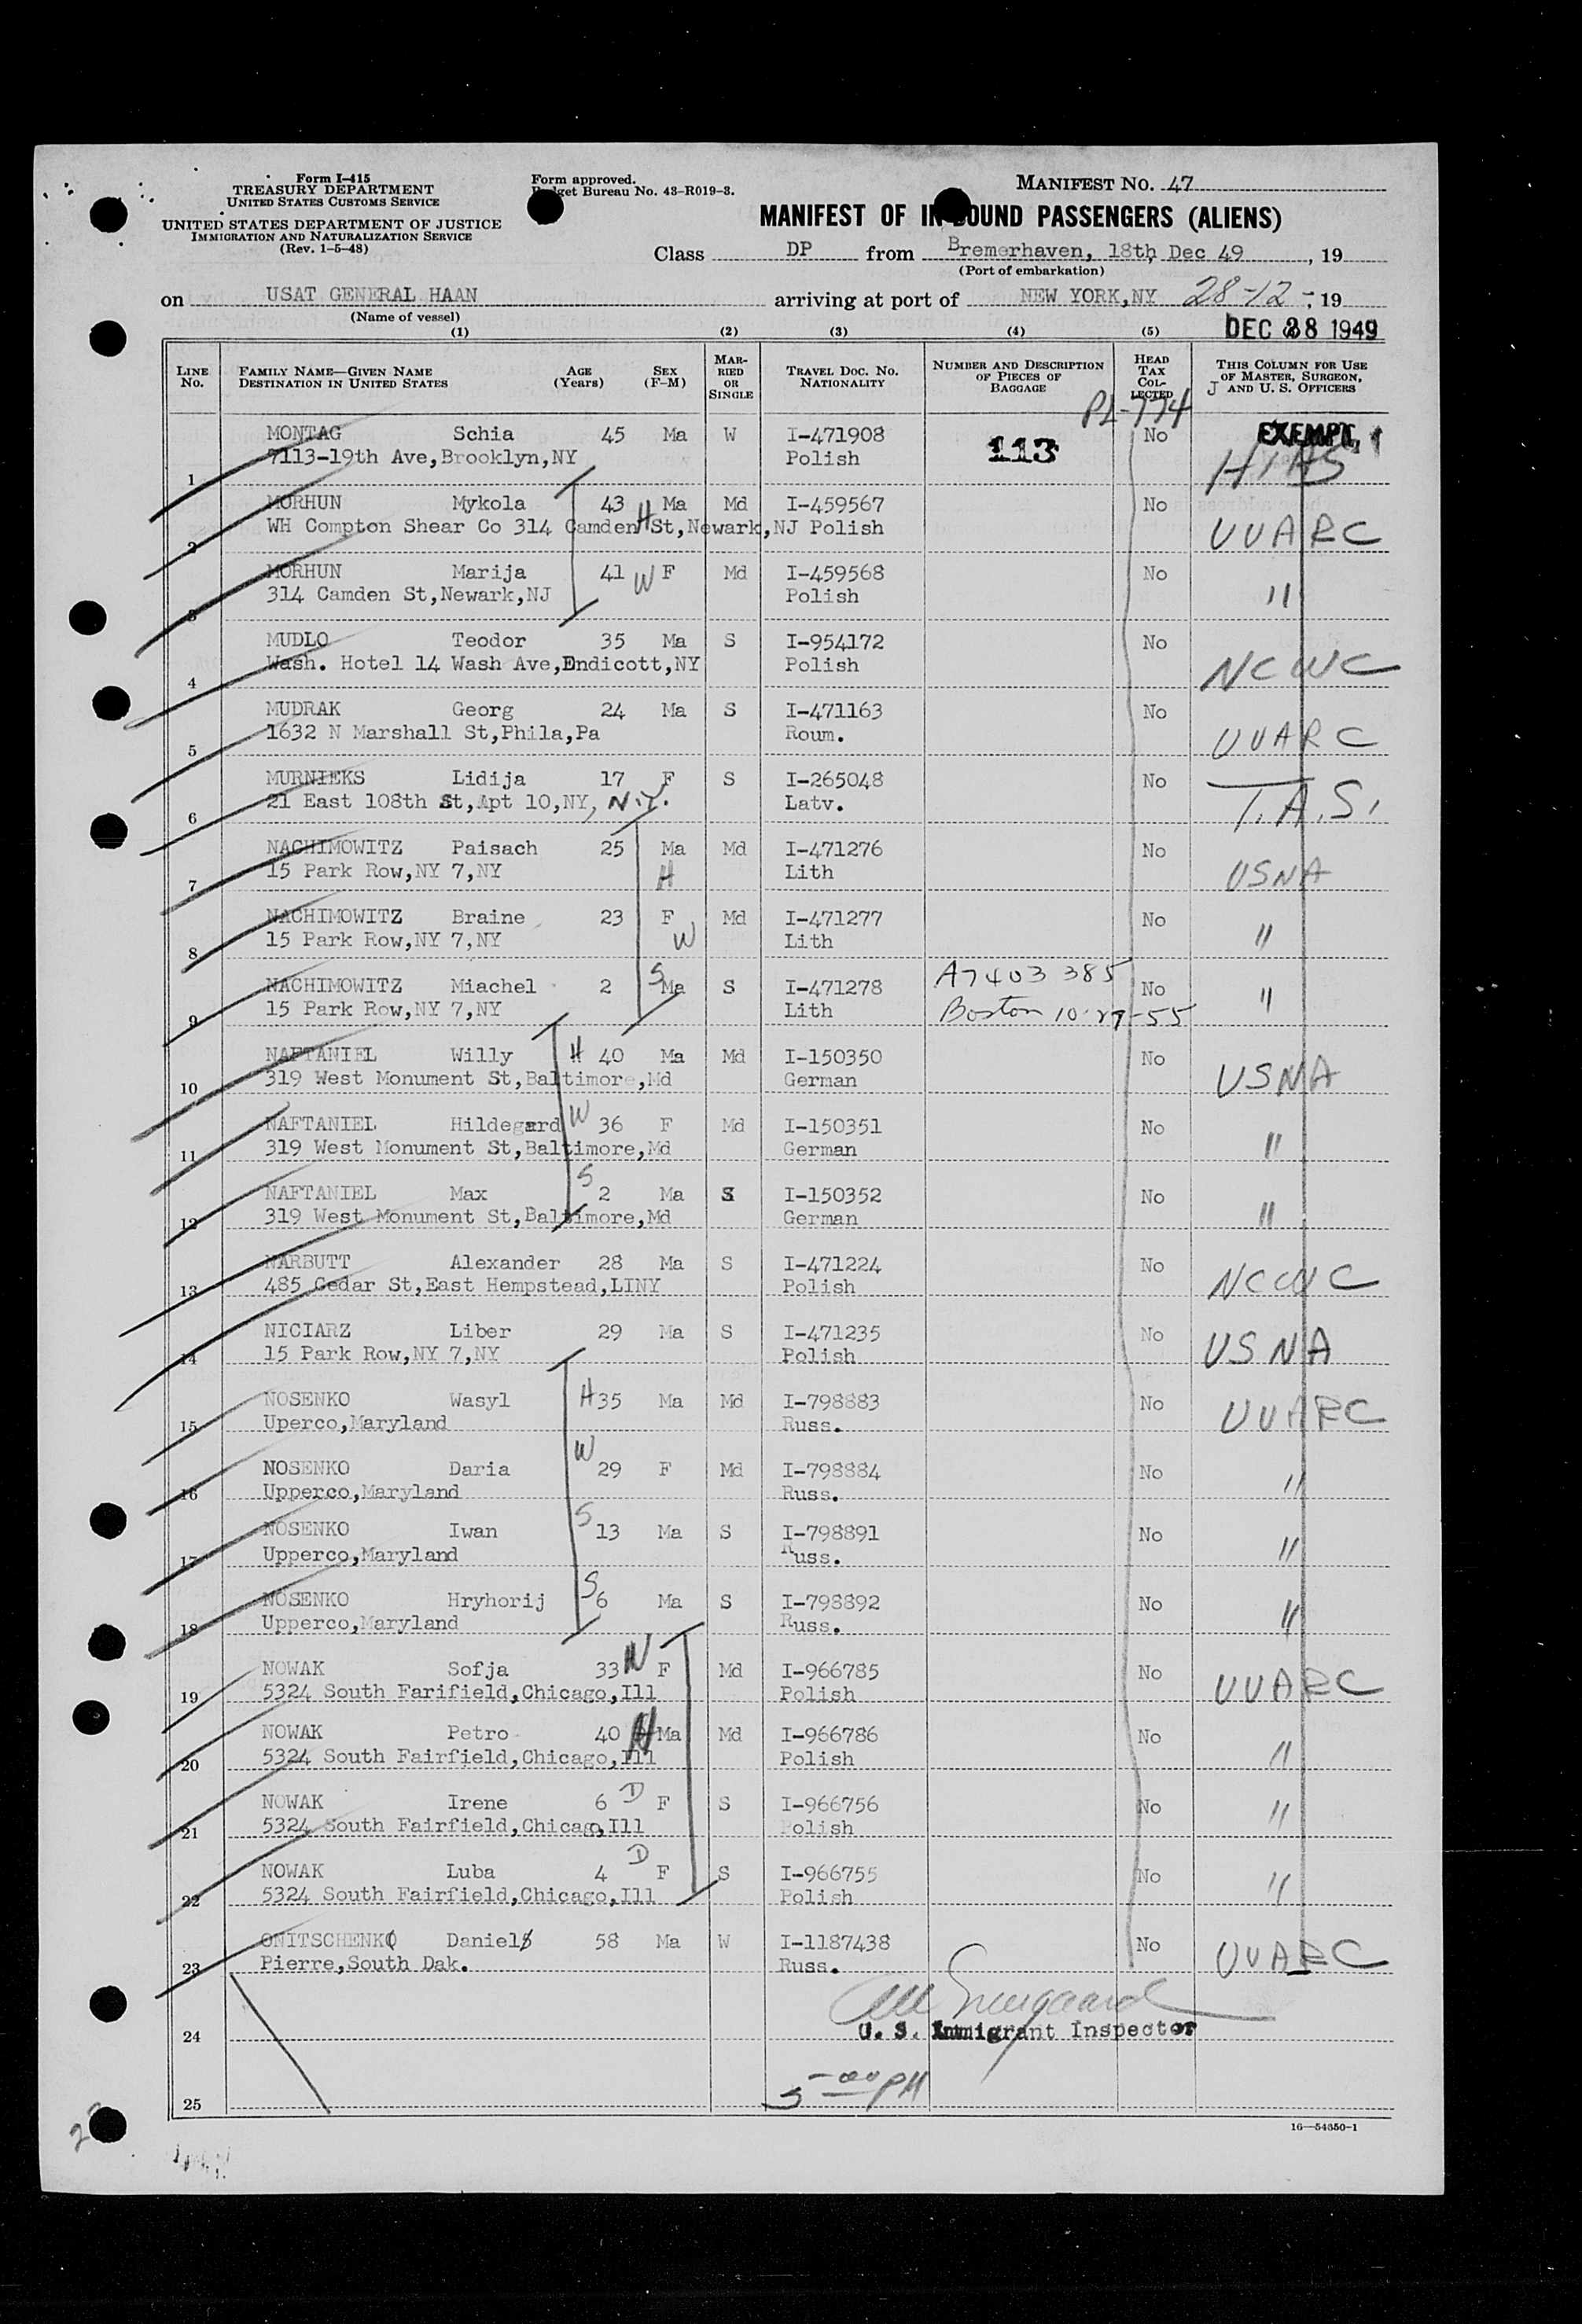 Form I-415
TREASURY DEPARTMENT
UNITED STATES CUSTOMS SERVICE
UNITED STATES DEPARTMENT OF JUSTICE
IMMIGRATION AND NATURALIZATION SERVICE
(Rev. 1-5-48)
Form approved.
Budget Bureau No. 43-R019-3.
MANIFEST NO. 47
MANIFEST OF INBOUND PASSENGERS (ALIENS)
Class DP from Bremerhaven, 18th Dec 49, 19
(Port of embarkation)
on USAT GENERAL HAAN arriving at port of NEW YORK,NY 28-12-, 19
(Name of vessel)
DEC 28 1949
(1) (2) (3) (4) (5)
LINE No. FAMILY NAME—GIVEN NAME DESTINATION IN UNITED STATES AGE (Years) SEX (F-M) MARRIED OR SINGLE TRAVEL DOC. NO. NATIONALITY NUMBER AND DESCRIPTION OF PIECES OF BAGGAGE HEAD TAX COLLECTED THIS COLUMN FOR USE OF MASTER, SURGEON, AND U. S. OFFICERS
PL-774
MONTAG Schia 45 Ma W I-471908 113 No EXEMPT
1 7113-19th Ave,Brooklyn,NY Polish HIAS
MORHUN Mykola 43 H Ma Md I-459567 No
2 WH Compton Shear Co 314 Camden St,Newark,NJ Polish UUARC
MORHUN Marija 41 W F Md I-459568 No
3 314 Camden St,Newark,NJ Polish "
MUDLO Teodor 35 Ma S I-954172 No
4 Wash. Hotel 14 Wash Ave,Endicott,NY Polish NCWC
MUDRAK Georg 24 Ma S I-471163 No
5 1632 N Marshall St,Phila,Pa Roum. UUARC
MURNIEKS Lidija 17 F S I-265048 No
6 21 East 108th St,Apt 10,NY, N.Y. Latv. T.A.S.
NACHIMOWITZ Paisach 25 Ma Md I-471276 No
7 15 Park Row,NY 7,NY H Lith USNA
NACHIMOWITZ Braine 23 F Md I-471277 No
8 15 Park Row,NY 7,NY W Lith "
NACHIMOWITZ Miachel 2 S Ma S I-471278 A7403 385 No
9 15 Park Row,NY 7,NY Lith Boston 10-27-55 "
NAFTANIEL Willy H 40 Ma Md I-150350 No
10 319 West Monument St,Baltimore,Md German USNA
NAFTANIEL Hildegard W 36 F Md I-150351 No
11 319 West Monument St,Baltimore,Md German "
NAFTANIEL Max S 2 Ma S I-150352 No
12 319 West Monument St,Baltimore,Md German "
NARBUTT Alexander 28 Ma S I-471224 No
13 485 Cedar St,East Hempstead,LINY Polish NCWC
NICIARZ Liber 29 Ma S I-471235 No
14 15 Park Row,NY 7,NY Polish USNA
NOSENKO Wasyl H 35 Ma Md I-798883 No
15 Uperco,Maryland Russ. UUARC
NOSENKO Daria W 29 F Md I-798884 No
16 Upperco,Maryland Russ. "
NOSENKO Iwan S 13 Ma S I-798891 No
17 Upperco,Maryland Russ. "
NOSENKO Hryhorij S 6 Ma S I-798892 No
18 Upperco,Maryland Russ. "
NOWAK Sofja 33 W F Md I-966785 No
19 5324 South Farifield,Chicago,Ill Polish UUARC
NOWAK Petro 40 H Ma Md I-966786 No
20 5324 South Fairfield,Chicago,Ill Polish "
NOWAK Irene 6 D F S I-966756 No
21 5324 South Fairfield,Chicago,Ill Polish "
NOWAK Luba 4 D F S I-966755 No
22 5324 South Fairfield,Chicago,Ill Polish "
ONITSCHENKO Daniel 58 Ma W I-1187438 No
23 Pierre,South Dak. Russ. UUARC
24 U. S. Immigrant Inspector
5-00 PM
25
16—54850-1